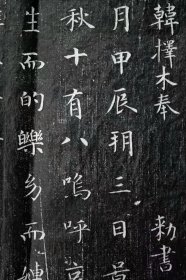 韓擇木奉　勅書
月甲辰朔三日景
秋十有八嗚呼哀
生而的皪㓜而